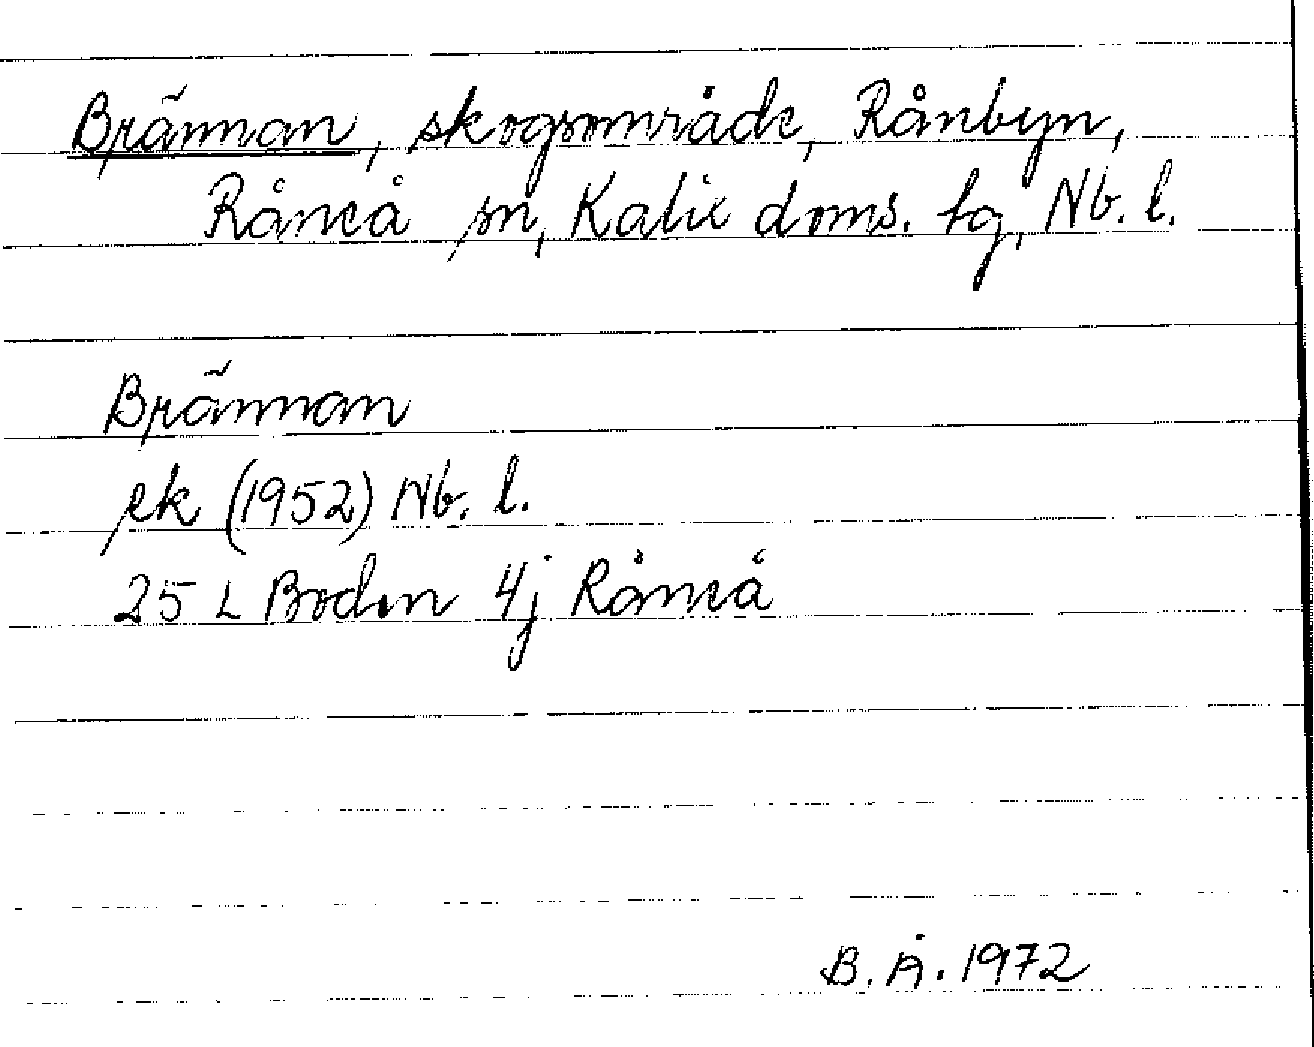 Brännan, skogsområde, Rånbyn,
Råneå sn, Kalix doms. tg, Nb. l.
Brännan
ek (1952) Nb. l.
25 L Boden 4j Råneå
B. Å. 1972